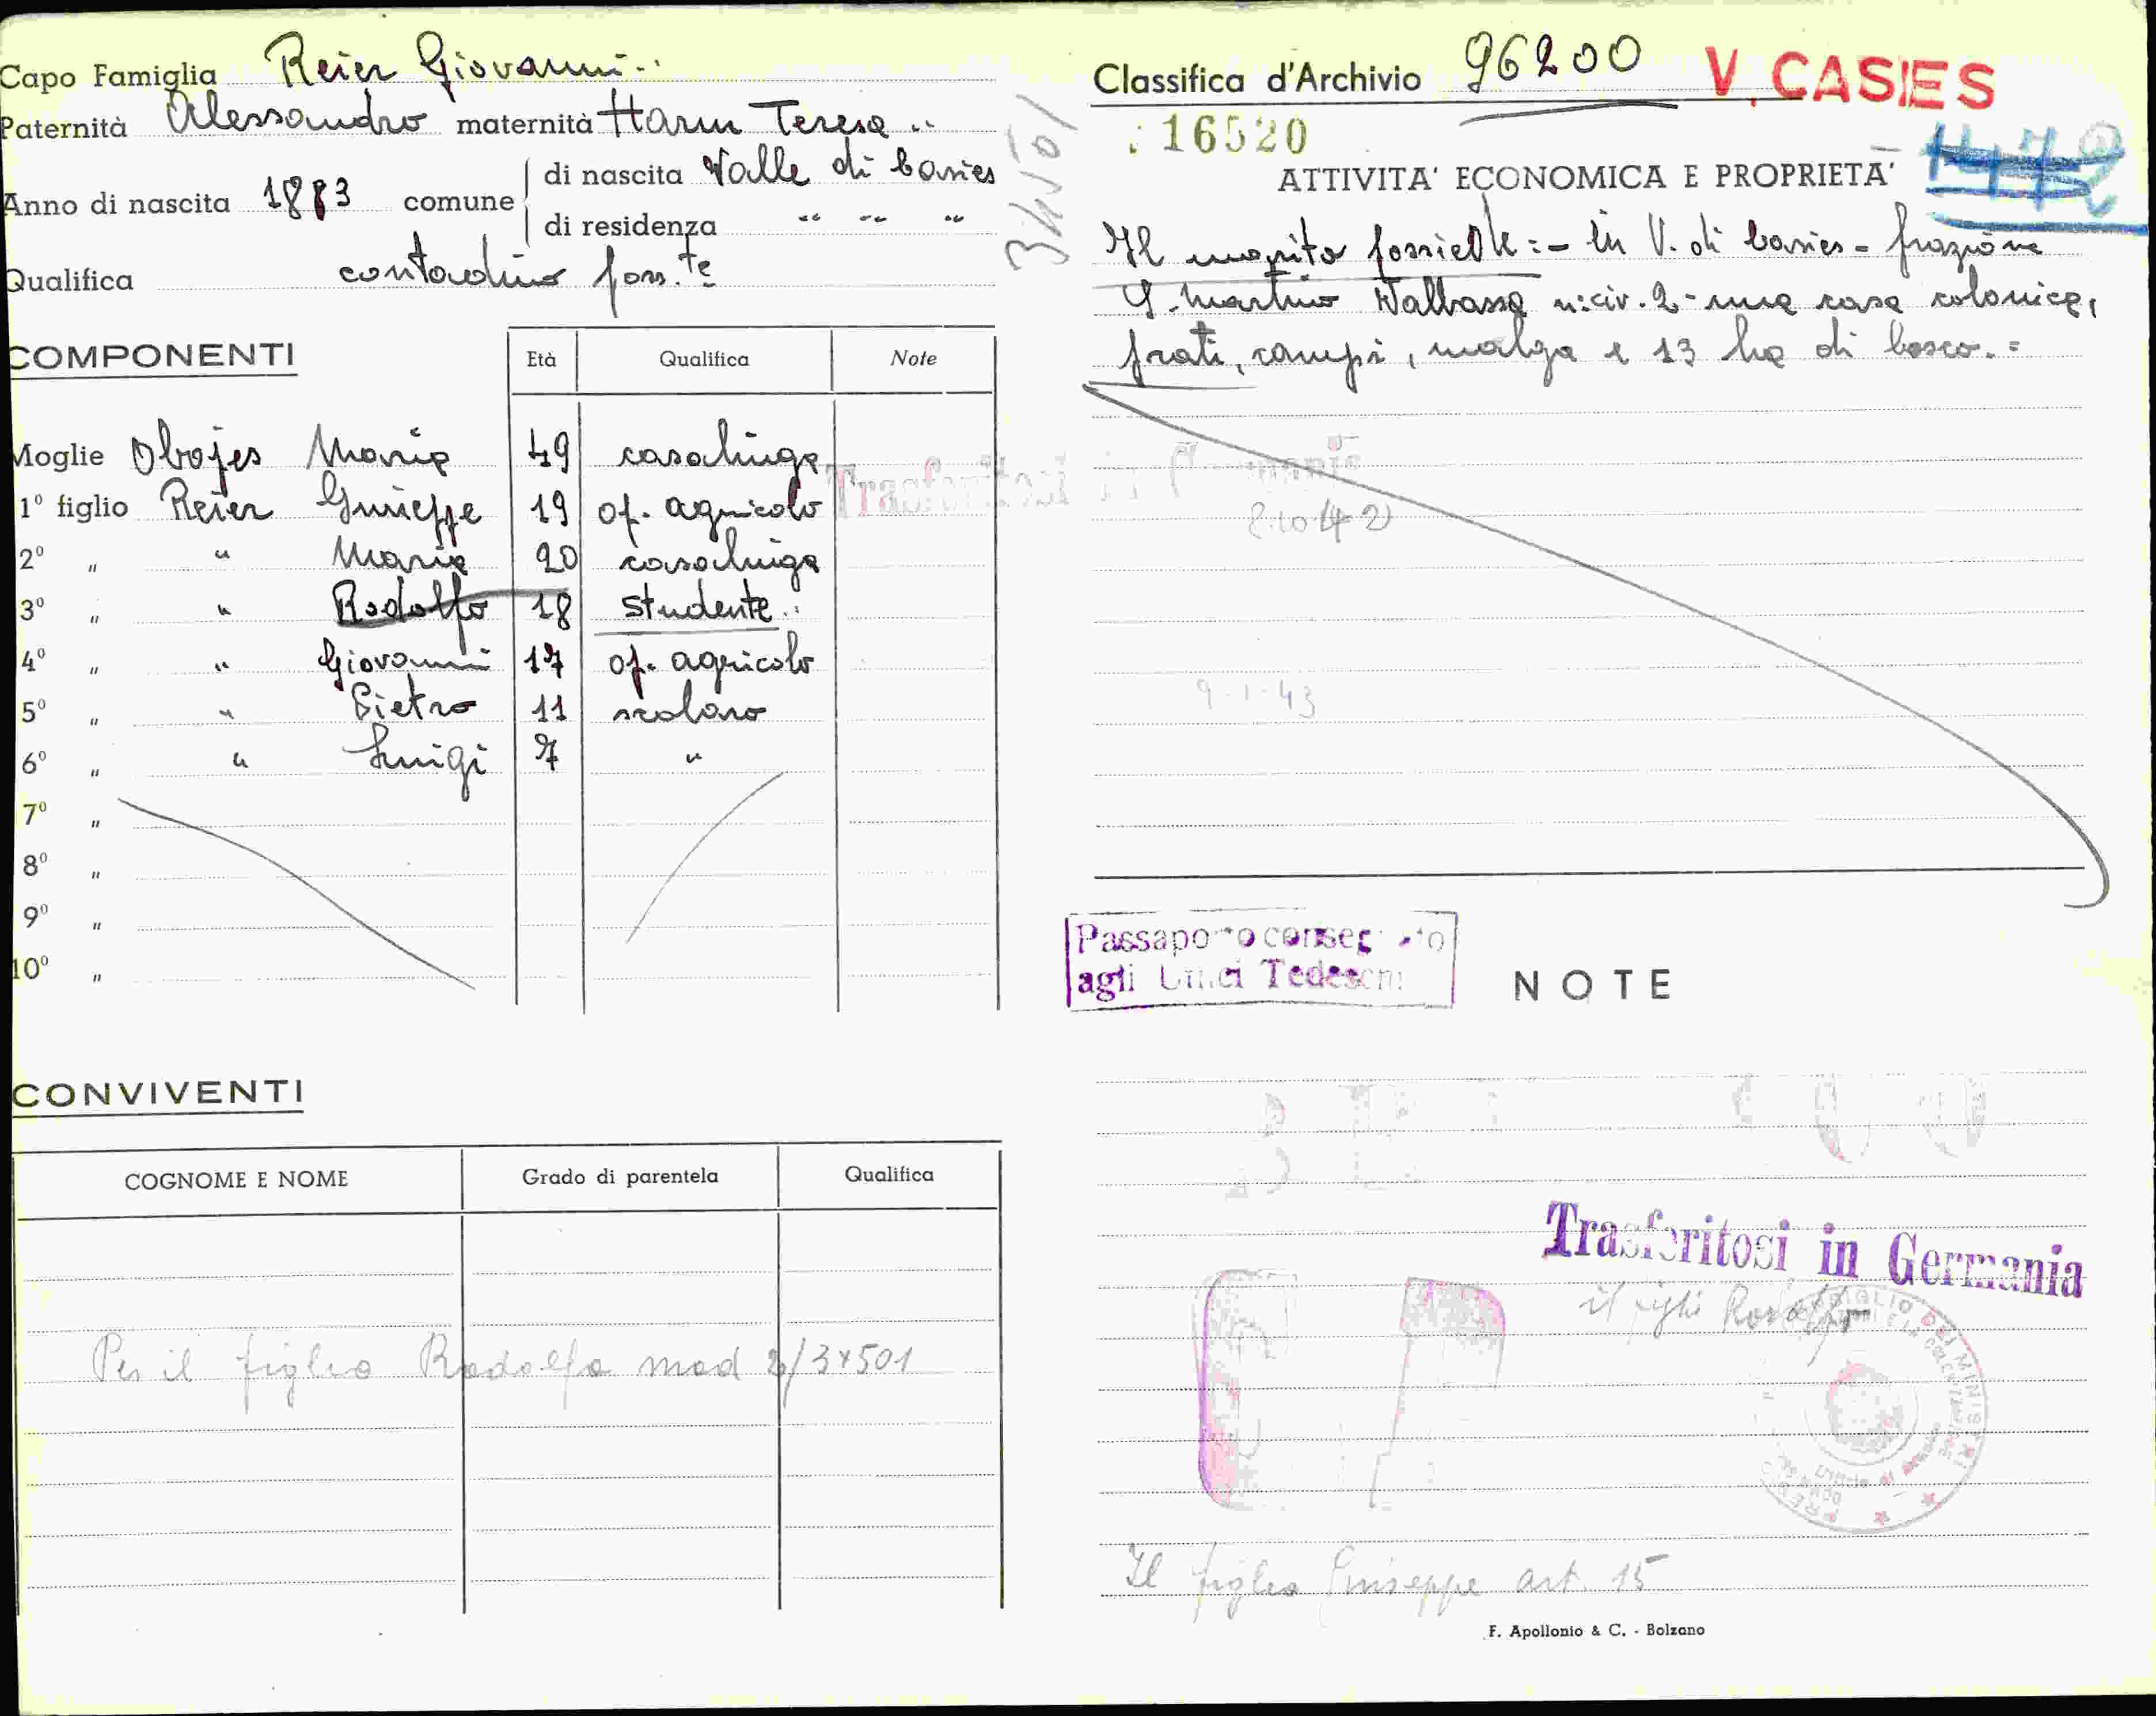 Capo Famiglia Reier Giovanni
Paternità Alessandro maternità Harm Teresa
Anno di nascita 1883 comune di nascita Valle di Casies
di residenza " " "
Qualifica contadino poss.te
COMPONENTI
Età Qualifica Note
Moglie Obojes Maria 49 casalinga
1º figlio Reier Giuseppe 19 op. agricolo
2º " " Maria 20 casalinga
3º " " Rodolfo 18 studente
4º " " Giovanni 17 op. agricolo
5º " " Pietro 11 scolaro
6º " " Luigi 7 "
7º "
8º "
9º "
10º "
CONVIVENTI
COGNOME E NOME Grado di parentela Qualifica
Per il figlio Rodolfo mod 2/34501
34501
Classifica d'Archivio 96200 V. CASIES
16520
ATTIVITA' ECONOMICA E PROPRIETA'
Il marito possiede := in V. di Casies - frazione
S. Martino Valbassa n: civ. 2 - una casa colonica,
prati, campi, malga e 13 ha di bosco. =
Trasferitosi in Germania
2.10.42
9-1-43
Passaporto consegnato
agli Uffici Tedeschi
NOTE
Trasferitosi in Germania
il figlio Rodolfo
Il figlio Giuseppe art. 15
F. Apollonio & C. - Bolzano